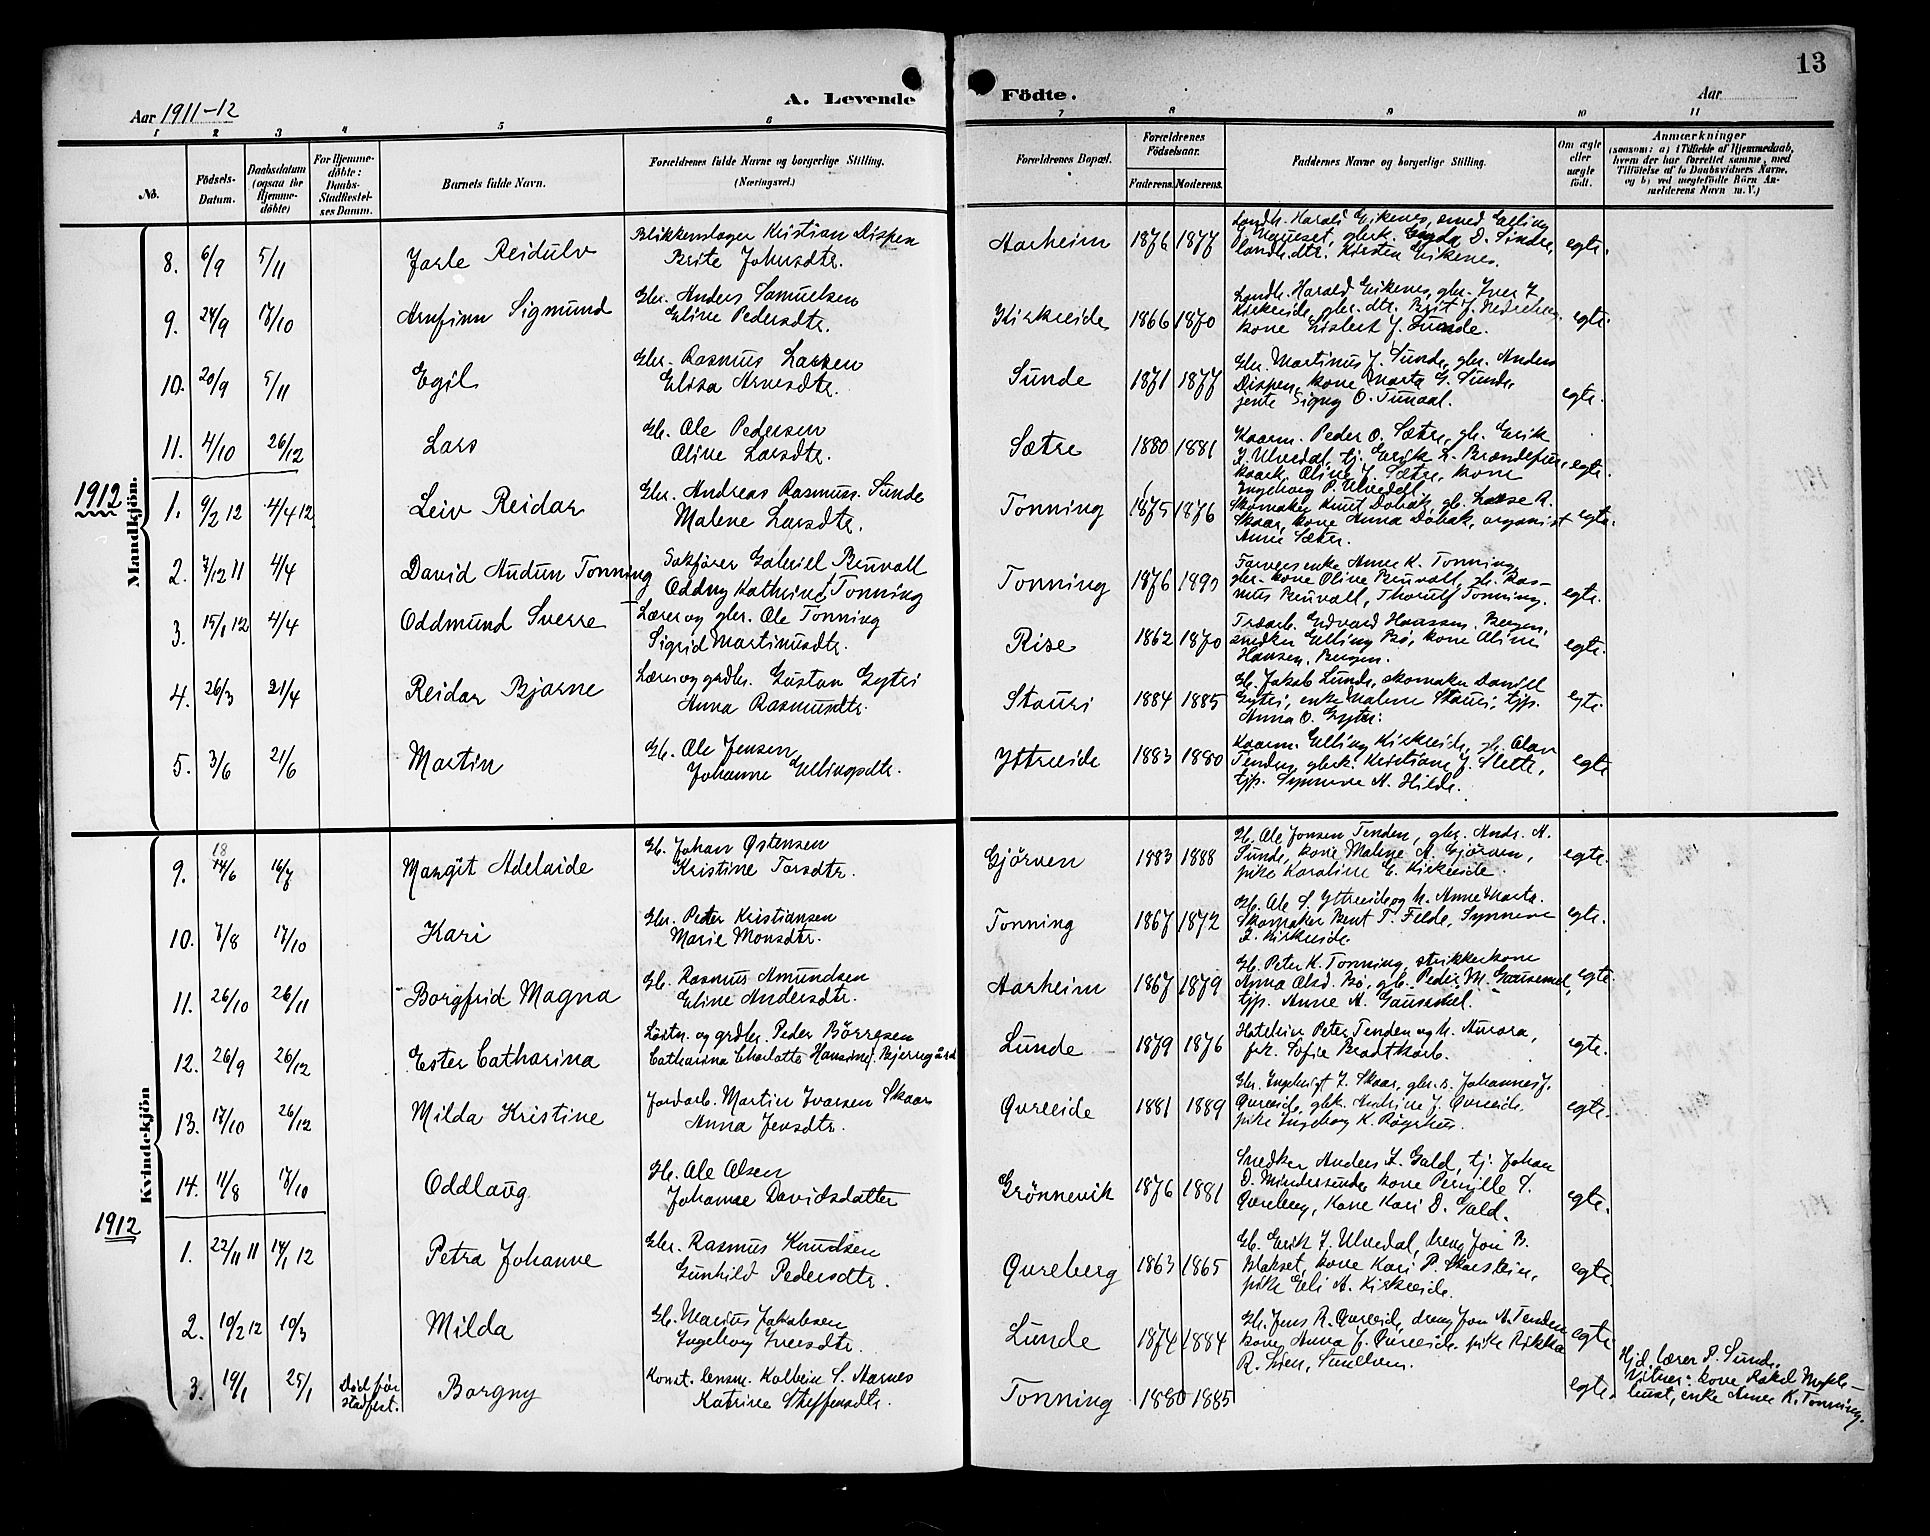 13
Aar 1911-12
A. Levende
Födte.
Aar
1 2 3 4 5 6 7 8 9 10 11
No.
Födsels-
Datum.
Daabsdatum
(ogsaa for
Hjemme-
döbte)
For Hjemme-
döbte:
Daabs-
Stadfæstel-
ses Datum.
Barnets fulde Navn.
Forældrenes fulde Navne og borgerlige Stilling.
(Næringsvei.)
Forældrenes Bopæl.
Forældrenes
Födselsaar.
Faderens. Moderens.
Faddernes Navne og borgerlige Stilling.
Om ægte
eller
uægte
födt.
Anmærkninger
(saasom: a) i Tilfælde af Hjemmedaab,
hvem der har forrettet samme, med
Tilföielse af to Daabsvidners Navne,
og b) ved uægtefödte Börn An-
melderens Navn m. V.)
Mandkjön.
8. 6/9 5/11 Jarle Reidulv
Blikkenslager Kristian Dispen
Brite Johnsdtr.
Aarheim 1876 1877
Landh. Harald Eikenes, smed Elling
landh.dtr. Kirsten Eikenes.
egte.
9. 24/9 17/10 Arnfinn Sigmund
Gbr. Anders Samuelsen
Eline Pedersdtr.
Kirkeeide 1866 1870
Landh. Harald Eikenes, gbr. Iver J.
Kirkeeide, gbr. dtr. Brit J.
kone Lisbert J. Sunde.
egte.
10. 20/9 5/11 Egil
Gbr. Rasmus Larsen
Elisa Arnesdtr.
Sunde 1871 1877
Gbr. Martinus J. Sunde, gbr. Anders
Dispen, kone Marta G. Sunde
jente Signy O. Tunaal.
egte.
11. 4/10 26/12 Lars
Gb. Ole Pedersen
Oline Larsdtr.
Sætre 1880 1881
Kaarm. Peder O. Sætre, gb. Erik
J. Ulvedal, tj. Erik L.
kaark. Oline J. Sætre, kone
Ingeborg P. Ulvedal.
egte.
1912
1. 9/2 12 4/4 12 Leiv Reidar
Gbr. Andreas Rasmuss. Sunde
Malene Larsdtr.
Tonning 1875 1876
Skomaker Knut Dobak, gb. Lasse R.
Skaar, kone Anna Dobak, organist
Anne Sætre.
egte.
2. 7/12 11 4/4 David Audun Tonning
Sakfører Gabriel Beuvall
Oddny Kathrine Tonning
Tonning 1876 1890
Farvers enke Anne K. Tonning,
gbr. kone Oline Beuvall, gb. Ras-
mus Beuvall, Thorulf Tonning.
egte.
3. 15/1 12 4/4 Oddmund Sverre
Lærer og gbr. Ole Tonning
Sigrid Martinusdtr.
Rise 1862 1870
Træarb. Edvard Hanssen, Bergen,
snedker Elling Bø, kone Oline
Hansen, Bergen.
egte.
4. 26/3 21/4 Reidar Bjarne
Lærer og grdbr. Gustav Gytri
Anna Rasmusdtr.
Stauri 1884 1885
Gb. Jakob Lunde, skomaker Daniel
Gytri, enke Malene Stauri, tjp.
Anna O. Gytri.
egte.
5. 3/6 21/6 Martin
Gb. Ole Jensen
Johanne Ellingsdtr.
Ytreeide 1883 1880
Kaarm. Elling Kirkeeide, gb. Olav
Tenden, gbrk. Kristiane J. Slette,
tjp. Synneve A. Hilde.
egte
Kvindekjön
9. 18 14/6 16/7 Margit Adelaide
Gb. Johan Østensen
Kristine Torsdtr.
Gjörven 1883 1888
Gb. Ole Jonsen Tenden, gbr. Andr. A.
Sunde, kone Malene A. Gjörven,
pike Karoline E. Kirkeeide.
egte.
10. 7/8 17/10 Kari
Gbr. Peter Kristiansen
Marie Monsdtr.
Tonning 1867 1872
Gb. Ole S. Ytreeide og h. Anne Marta.
Skomaker Bent T. Felde, Synneve
J. Kirkeeide.
egte.
11. 26/10 26/11 Borgfrid Magna
Gb. Rasmus Amundsen
Eline Andersdtr.
Aarheim 1867 1879
Gb. Peter K. Tonning, strikkerkone
Anna Olsd. Bø, gb. Peder M. Gausemel,
tjp. Anne A. Gausemel.
egte.
12. 26/9 26/12 Ester Catharina
Løitn. og grdbr. Peder Børresen
Catharina Charlotte Hansine f. Bjerregård
Lunde 1879 1876
Hoteleier Peter Tenden og h. Aurora,
frk. Sofie Bradtkorb.
egte.
13. 17/10 26/12 Milda Kristine
Jordarb. Martin Ivarsen Skaar
Anna Jensdtr.
Qvreeide 1881 1889
Gbr. Ingebrigt J. Skaar, gbr.s. Johannes J.
Qvreeide, gbk. Andrine J. Qvreeide
pike Ingeborg K. Røyrhus.
egte.
14. 11/8 17/10 Oddlaug
Gb. Ole Olsen
Johanne Davidsdatter
Grönnevik 1876 1881
Snedker Anders J. Gald, tj. Johan
D. Mindresunde kone Pernille S.
Qvreberg, kone Kari D. Gald.
egte.
1912
1. 22/11 11 14/1 12 Petra Johanne
Gbr. Rasmus Knudsen
Gunhild Pedersdtr.
Qvreberg 1863 1865
Gb. Erik J. Ulvedal, dreng Jon B.
Blakset, kone Kari P. Skarstein,
pike Eli A. Kirkeeide.
egte.
2. 10/2 12 10/3 Milda
Gb. Marius Jakobsen
Ingeborg Iversdtr.
Lunde 1874 1884
Gb. Jens R. Qvreeide, dreng Jon A. Tenden
kone Anna J. Qvreeide pike Rikka
R.
egte
3. 19/1 25/1 Död før
stadfest.
Borgny
Konst. lensm. Kolbein S. Aarnes
Katrine Steffensdtr.
Tonning 1880 1885
egte.
Hjd. lærer P. Sunde.
Vitner: kone Rakel Mykle-
bust, enke Anne K. Tonning.